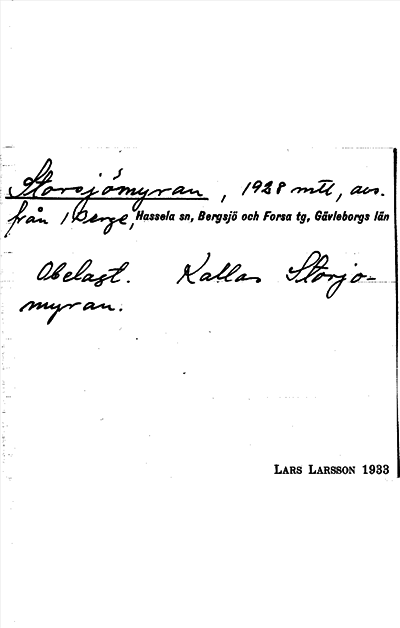 Storsjömyran, 1928 mtl, avs.
från 1 Berge, Hassela sn, Bergsjö och Forsa tg, Gävleborgs län
Obelagt. Kallas Storsjö-
myran.
LARS LARSSON 1933